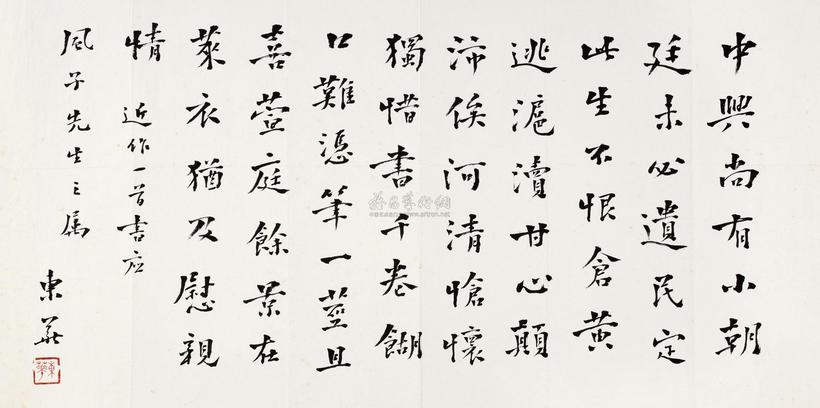 中興尚有小朝
廷未必遺民定
此生不恨倉黃
逃滬瀆甘心顛
沛俟河清愴懷
獨惜書千卷餬
口難憑筆一莖且
喜萱庭餘景在
萊衣猶及慰親
情 近作一首書应
風子先生之属
東華